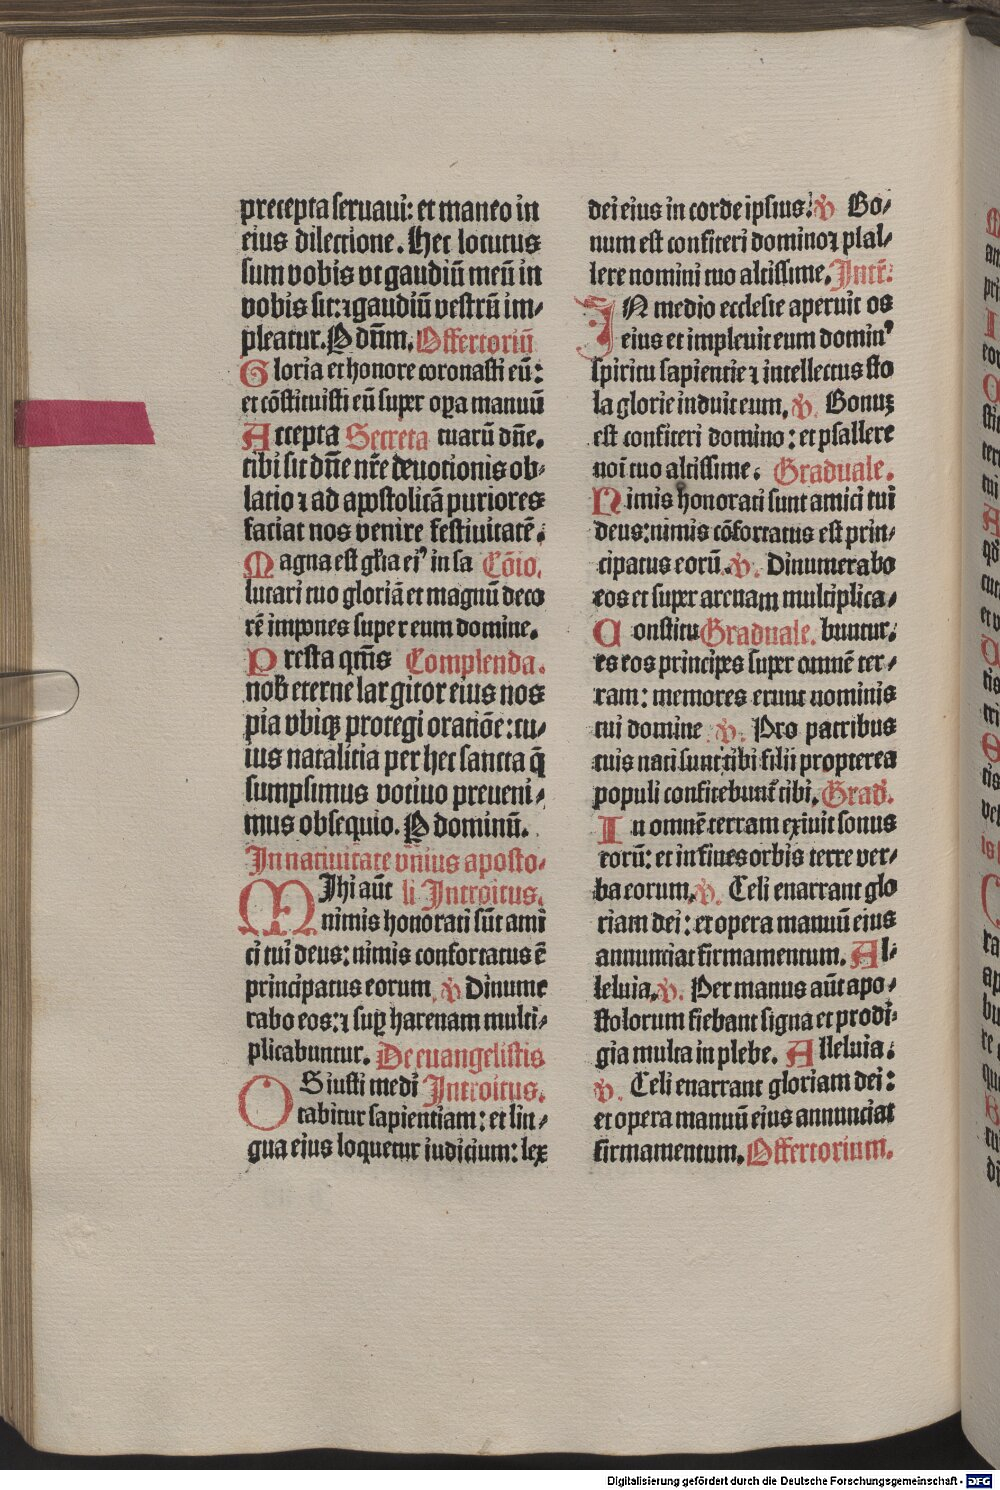 precepta seruaui: et maneo in
eius dilectione. Hec locutus
sum vobis vt gaudiū meū in
vobis sit: ⁊ gaudiū vestrū im⸗
pleatur. P dn̄m. Offertoriū
Gloria et honore coronasti eū:
et cōstituisti eū super oꝑa manuū
Accepta Secreta tuarū dn̄e.
tibi sit dn̄e nr̄e deuotionis ob⸗
latio ⁊ ad apostolicā puriores
faciat nos venire festiuitatē.
Magna est gl̄ia eiꝰ in sa Cōio.
lutari tuo gloriā et magnū deco
rē impones super eum domine.
Presta qm̄s Complenda.
nob̄ eterne largitor eius nos
pia vbiqꝫ protegi oratiōe: cu⸗
ius natalitia per hec sancta q̄
sumpsimus votiuo preueni⸗
mus obsequio. P dominū.
In natiuitate vn̄ius aposto⸗
Mihi aūt li Introitus.
nimis honorati sūt ami
ci tui deus: nimis confortatus ē
principatus eorum ℣ Dinume
rabo eos: ⁊ suꝑ harenam multi⸗
plicabuntur. De euangelistis
OS iusti medi Introitus.
tabitur sapientiam: et lin⸗
gua eius loquetur iudicium: lex
dei eius in corde ipsius. ℣ Bo⸗
num est confiteri domino ⁊ psal⸗
lere nomini tuo altissime. Intr̄:
IN medio ecclesie aperuit os
eius et impleuit eum dominꝰ
spiritu sapientie ⁊ intellectus sto
la glorie induit eum. ℣. Bonuꝫ
est confiteri domino: et psallere
noī tuo altissime: Graduale.
Nimis honorati sunt amici tui
deus: nimis cōfortatus est prin⸗
cipatus eorū. ℣. Dinumerabo
eos et super arenam multiplica⸗
Constitu Graduale. buntur:
es eos principes super omnē ter⸗
ram: memores erunt nominis
tui domine ℣. Pro patribus
tuis nati sunt tibi filii propterea
populi confitebunt̄ tibi. Grad̄.
In omnē terram exiuit sonus
eorū: et in fines orbis terre ver⸗
ba eorum. ℣. Celi enarrant glo
riam dei: et opera manuū eius
annunciat firmamentum. Al⸗
leluia. ℣. Per manus aūt apo⸗
stolorum fiebant signa et prodi⸗
gia multa in plebe. Alleluia:
℣. Celi enarrant gloriam dei:
et opera manuū eius annunciat
firmamentum. Offertorium.
Digitalisierung gefördert durch die Deutsche Forschungsgemeinschaft - DFG